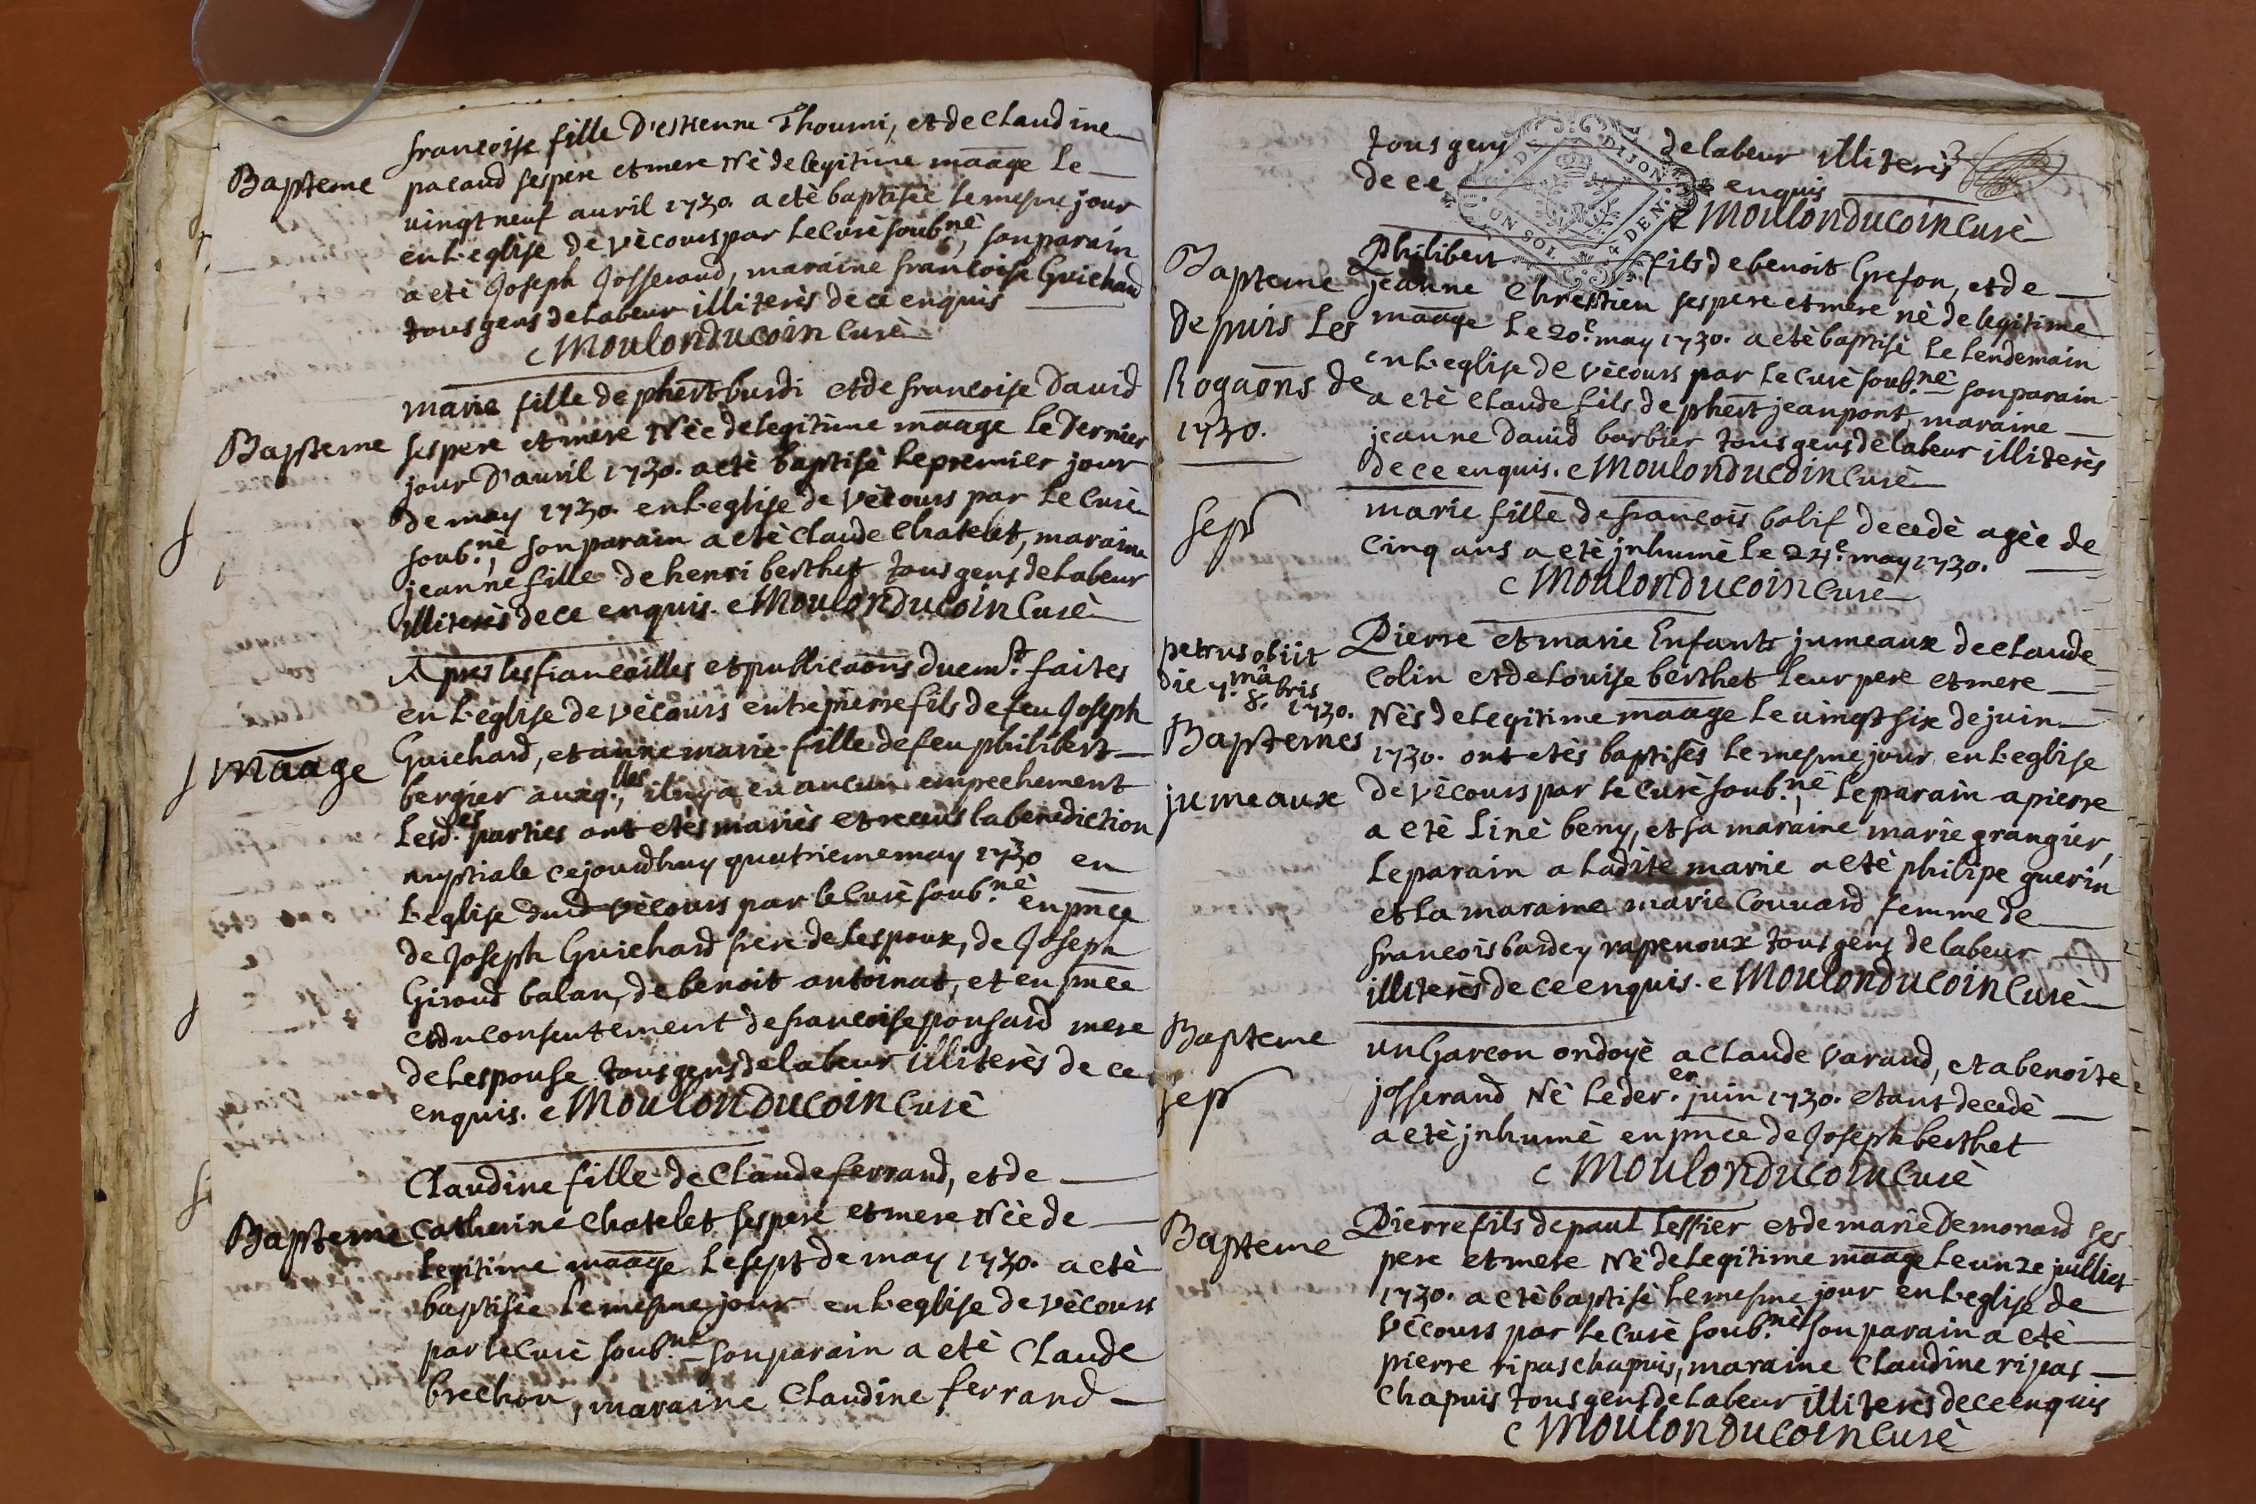 francoise fille D'estienne Thoumi, et de Claudine
Bapteme
pacaud ses pere et mere Né de legitime maage le
vingt neuf auril 1730. a eté baptisée le mesme jour
en Leglise de vécours par le Curé soub.né, son parain
a eté Joseph Josserand, maraine francoise Guichard
tous gens de labeur illiterés de ce enquis
C Moulonducoin Curé
marie fille de phert burdi et de francoise David
Bapteme
ses pere et mere Née de legitime maage le Dernier
jour D'auril 1730. a eté baptisé le premier jour
de may 1730. en Leglise de vécours par le Curé
soub.né, son parain a eté Claude Chatelet, maraine
jeanne fille de henri berthet tous gens de labeur
illiterés de ce enquis. C Moulonducoin Curé
Apres les fiancailles et publicaons duem.t faites
en Leglise de vécours entre pierre fils de feu Joseph
maage
Guichard, et anne marie fille de feu philibert
bergier auxq.lles il n'y a eu aucun empechement
lesd.es parties ont etés mariés et receus la benediction
nuptiale cejourdhuy quatrieme may 1730 en
Leglise dud vécours par le Curé soub.né en pnce
de Joseph Guichard frere de Lespoux, de Joseph
Giroud balan, de benoit antoinat, et en pnce
et du consentement de francoise ponsard mere
de Lespouse tous gens de labeur illiterés de ce
enquis. C Moulonducoin Curé
Claudine fille de Claude ferrand, et de
Bapteme
Catherine Chatelet ses pere et mere Née de
legitime maage le sept de may 1730. a eté
baptisée le mesme jour en Leglise de vécours
par le Curé soub.né son parain a eté Claude
brechon, maraine Claudine ferrand
tous gens de labeur illiterés
de ce enquis
DIJON
UN SOL 4 DEN.
C Moulonducoin Curé
Bapteme
depuis les
Rogaons de
1730.
Philibert fils de benoit Grefon, et de
jeanne Chrestien ses pere et mere né de legitime
maage le 20.e may 1730. a eté baptisé le lendemain
en Leglise de vécours par le Curé soub.né son parain
a eté Claude fils de phert jeanpont, maraine
jeanne David barbier tous gens de labeur illiterés
de ce enquis. C Moulonducoin Curé
sepr
marie fille de francois bolif decedé agée de
cinq ans a eté jnhumé le 24.e may 1730.
C Moulonducoin Curé
petrus obiit
die 4.ma 8.bris
1730.
Baptemes
jumeaux
Pierre et marie Enfants jumeaux de Claude
Colin et de Louise berthet leur pere et mere
Nés de legitime maage le vingt six de juin
1730. ont etés baptisés le mesme jour en Leglise
de vécours par le Curé soub.né, le parain a pierre
a eté Liné beny, et sa maraine marie grangier,
le parain a ladite marie a eté philipe guerin
et la maraine marie Couuard femme de
francois bardey rapenoux tous gens de labeur
illiterés de ce enquis. C Moulonducoin Curé
Bapteme
sepr
un Garcon ondoyé a Claude varaud, et a benoite
josserand Né le der.er juin 1730. etant decedé
a eté jnhumé en pnce de Joseph berthet
C Moulonducoin Curé
Bapteme
Pierre fils de paul Lessier et de marie Demonard ses
pere et mere Né de legitime maage le unze julliet
1730. a eté baptisé le mesme jour en Leglise de
vécours par le Curé soub.né, son parain a eté
pierre ripas chapuis, maraine Claudine ripas
Chapuis tous gens de labeur illiterés de ce enquis
C Moulonducoin Curé